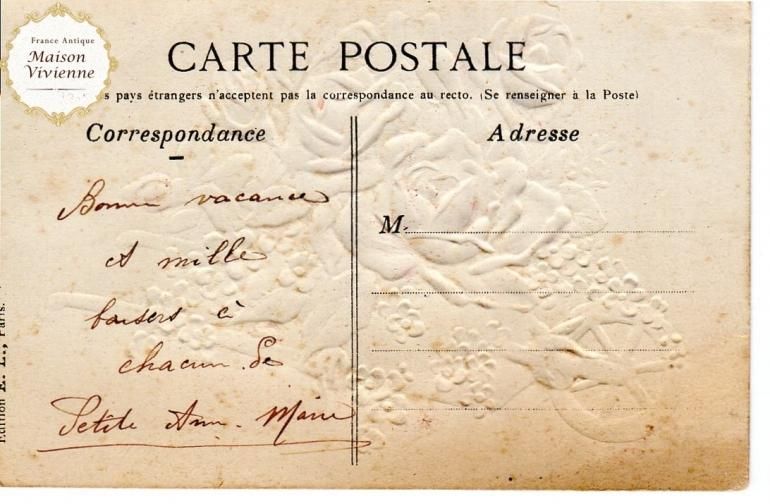 France Antique
Maison
Vivienne
CARTE POSTALE
s pays étrangers n'acceptent pas la correspondance au recto. (Se renseigner à la Poste)
Correspondance
Bonne vacance
et mille
baisers à
chacun de
Petite Ann-Marie
Adresse
M.
Edition E. L., Paris.